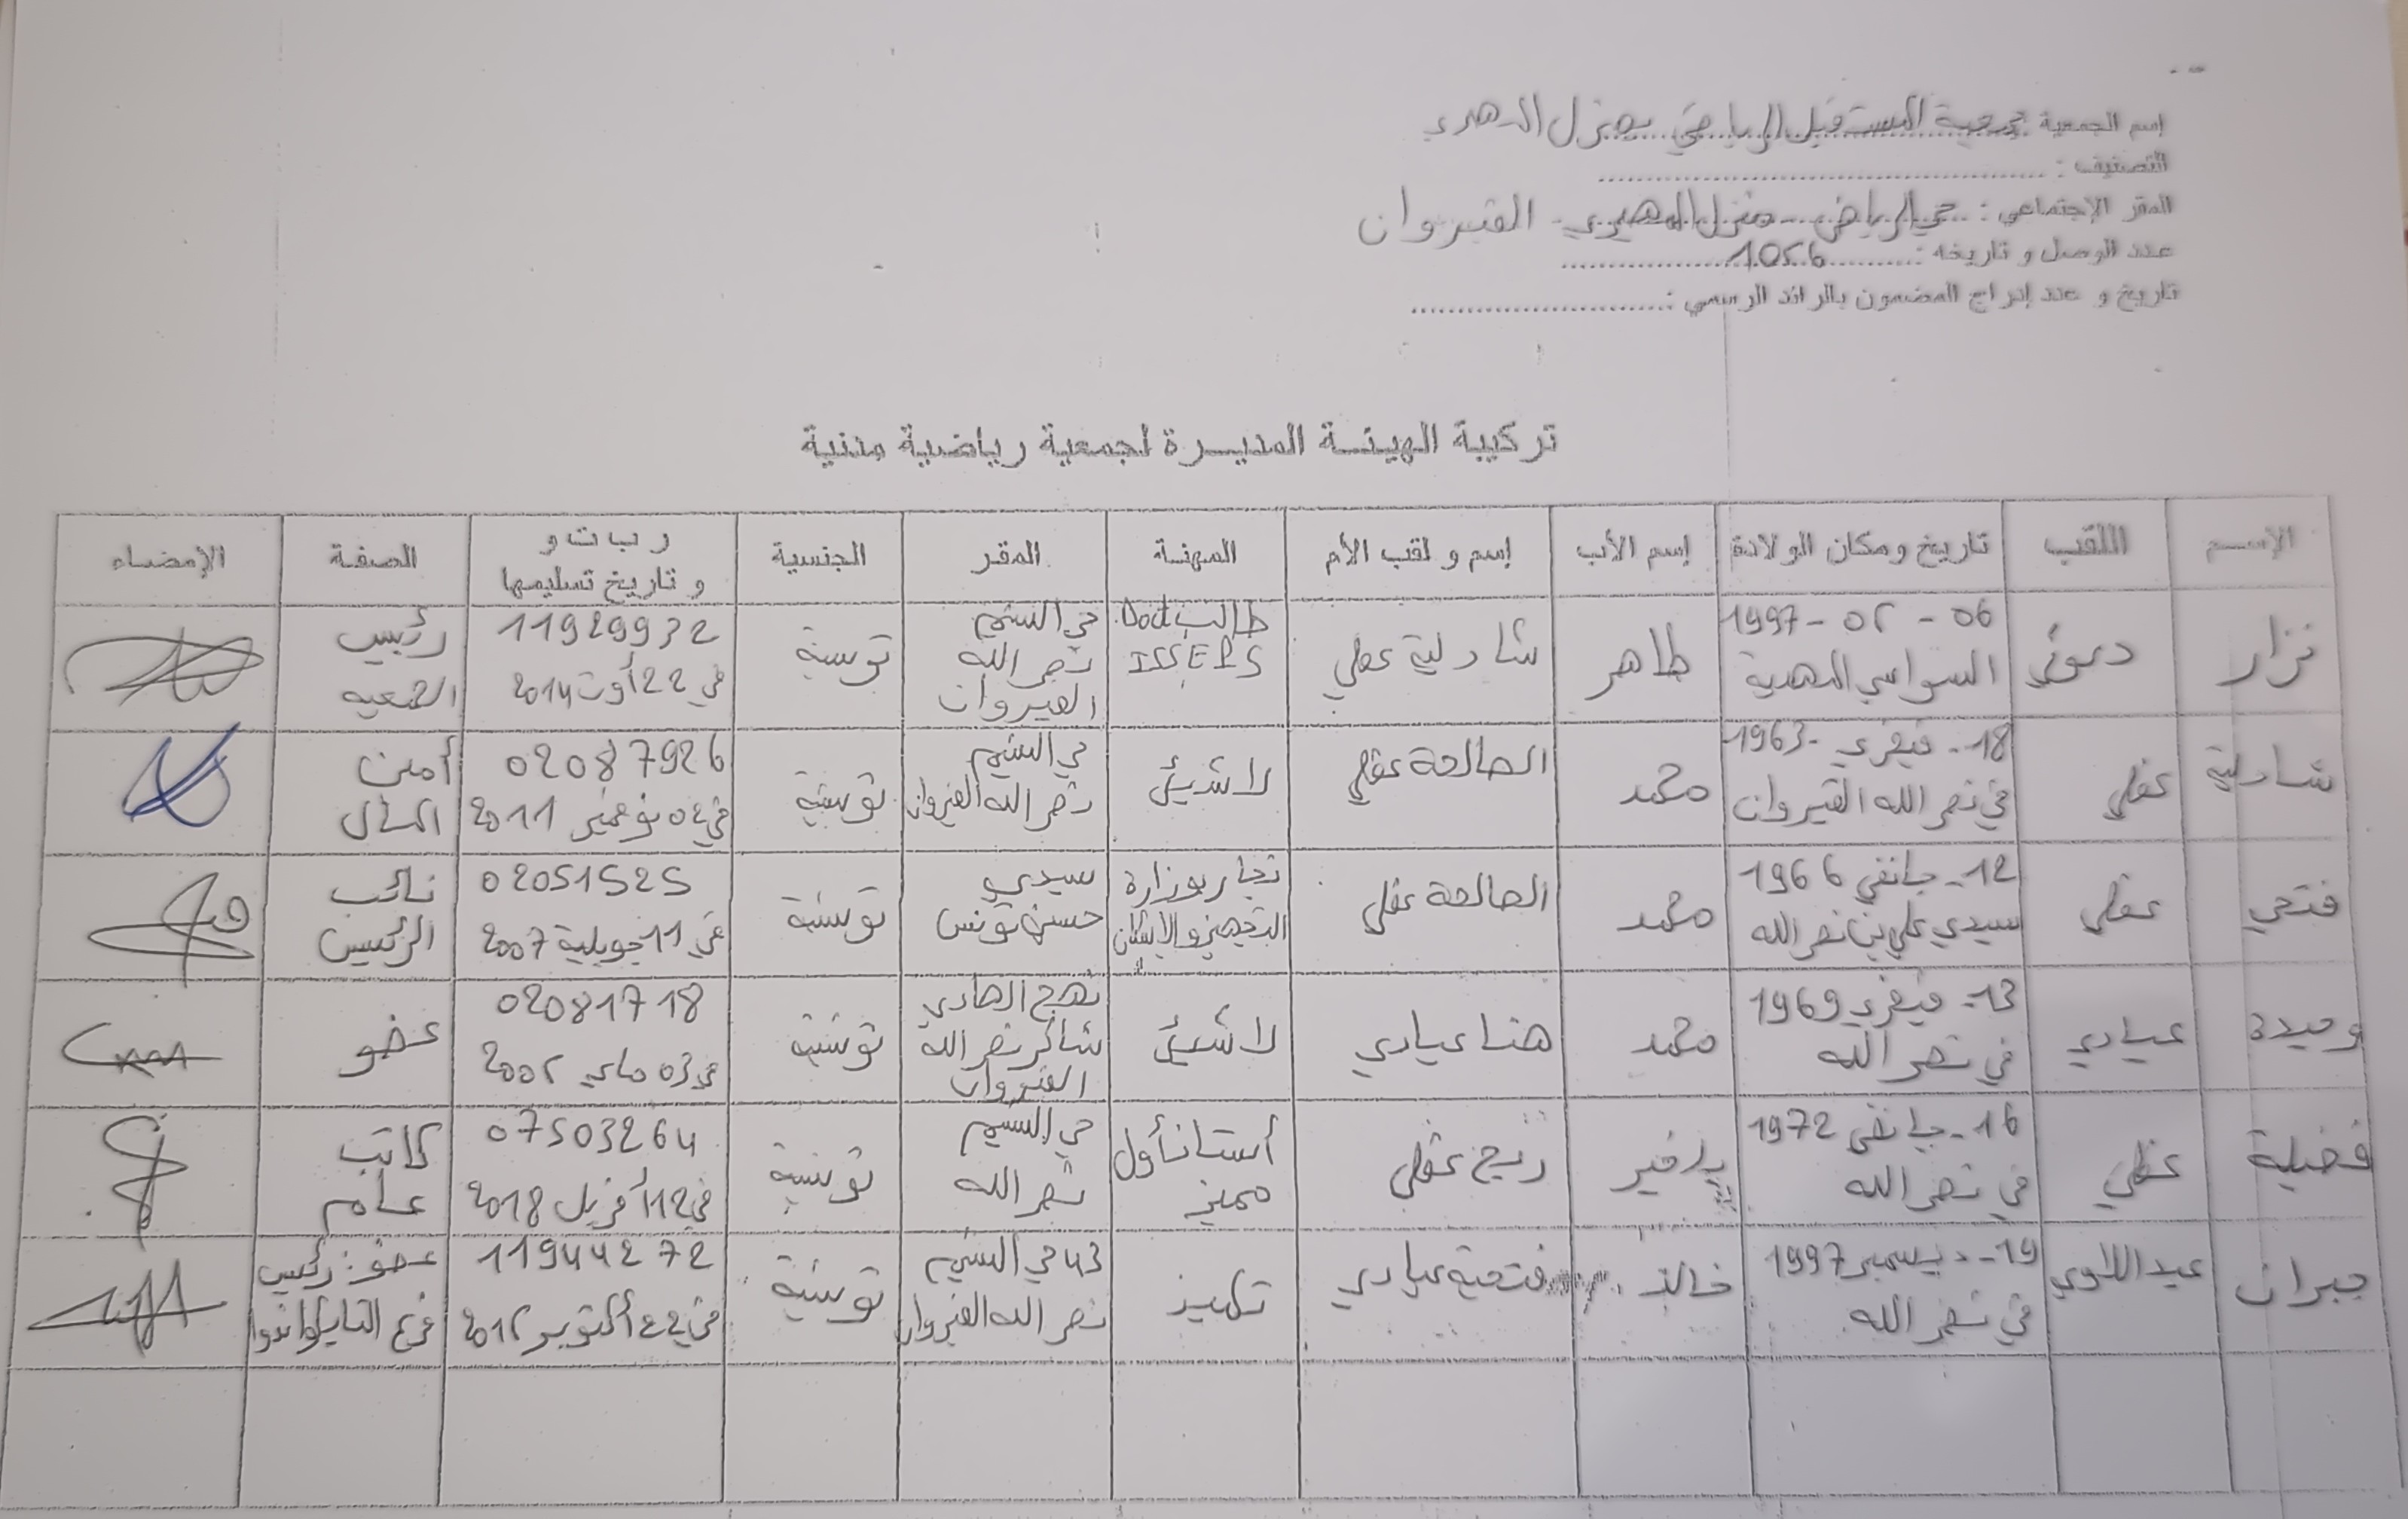 إسم الجمعية جمعية المستقبل الرياضي بمنزل المهيري
التصنيف : ........................
المقر الإجتماعي : حي الرياض - منزل المهيري - القيروان
عدد الوصل و تاريخه : 1056
تاريخ و عدد إدراج المضمون بالرائد الرسمي : ........................
تركيبة الهيئة المديرة لجمعية رياضية مدنية
الإسم اللقب تاريخ ومكان الولادة إسم الأب إسم و لقب الأم المهنة المقر الجنسية ر ب ت و و تاريخ تسليمها الصفة الإمضاء
نزار 06 - 05 - 1997 السواسي المهدية طاهر شادلية عقلي طالب Doct ISSEPS حي النسيم نصر الله القيروان تونسية 11929932 في 22 أوت 2014 رئيس الجمعية
شادلية عقلي 18 - فيفري - 1963 في نصر الله القيروان محمد الصالحة عقلي لا شيئ حي النسيم نصر الله القيروان تونسية 02087926 في 02 نوفمبر 2011 أمين المال
فتحي عقلي 12 - جانفي 1966 سيدي علي بن نصر الله محمد الصالحة عقلي نجار بوزارة التجهيز و الإسكان سيدي حسين تونس تونسية 02051525 في 11 جويلية 2007 نائب الرئيس
وحيدة عيادي 13 - فيفري 1969 في نصر الله محمد هنا عيادي لا شيئ نهج الهادي شاكر نصر الله القيروان تونسية 02081718 في 03 ماي عضو
فضيلة عقلي 16 - جانفي 1972 في نصر الله ريح عقلي أستاذ أول مميز حي النسيم نصر الله تونسية 07503264 في 12 أفريل 2018 كاتب عام
جبران عبد اللاوي 19 - ديسمبر 1997 في نصر الله خالد فتحية عيادي تلميذ 43 حي النسيم نصر الله القيروان تونسية 11944272 في 22 أكتوبر عضو : رئيس فرع التايكواندو